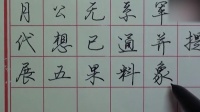 月公无系军
代想已通并提
展五果料象